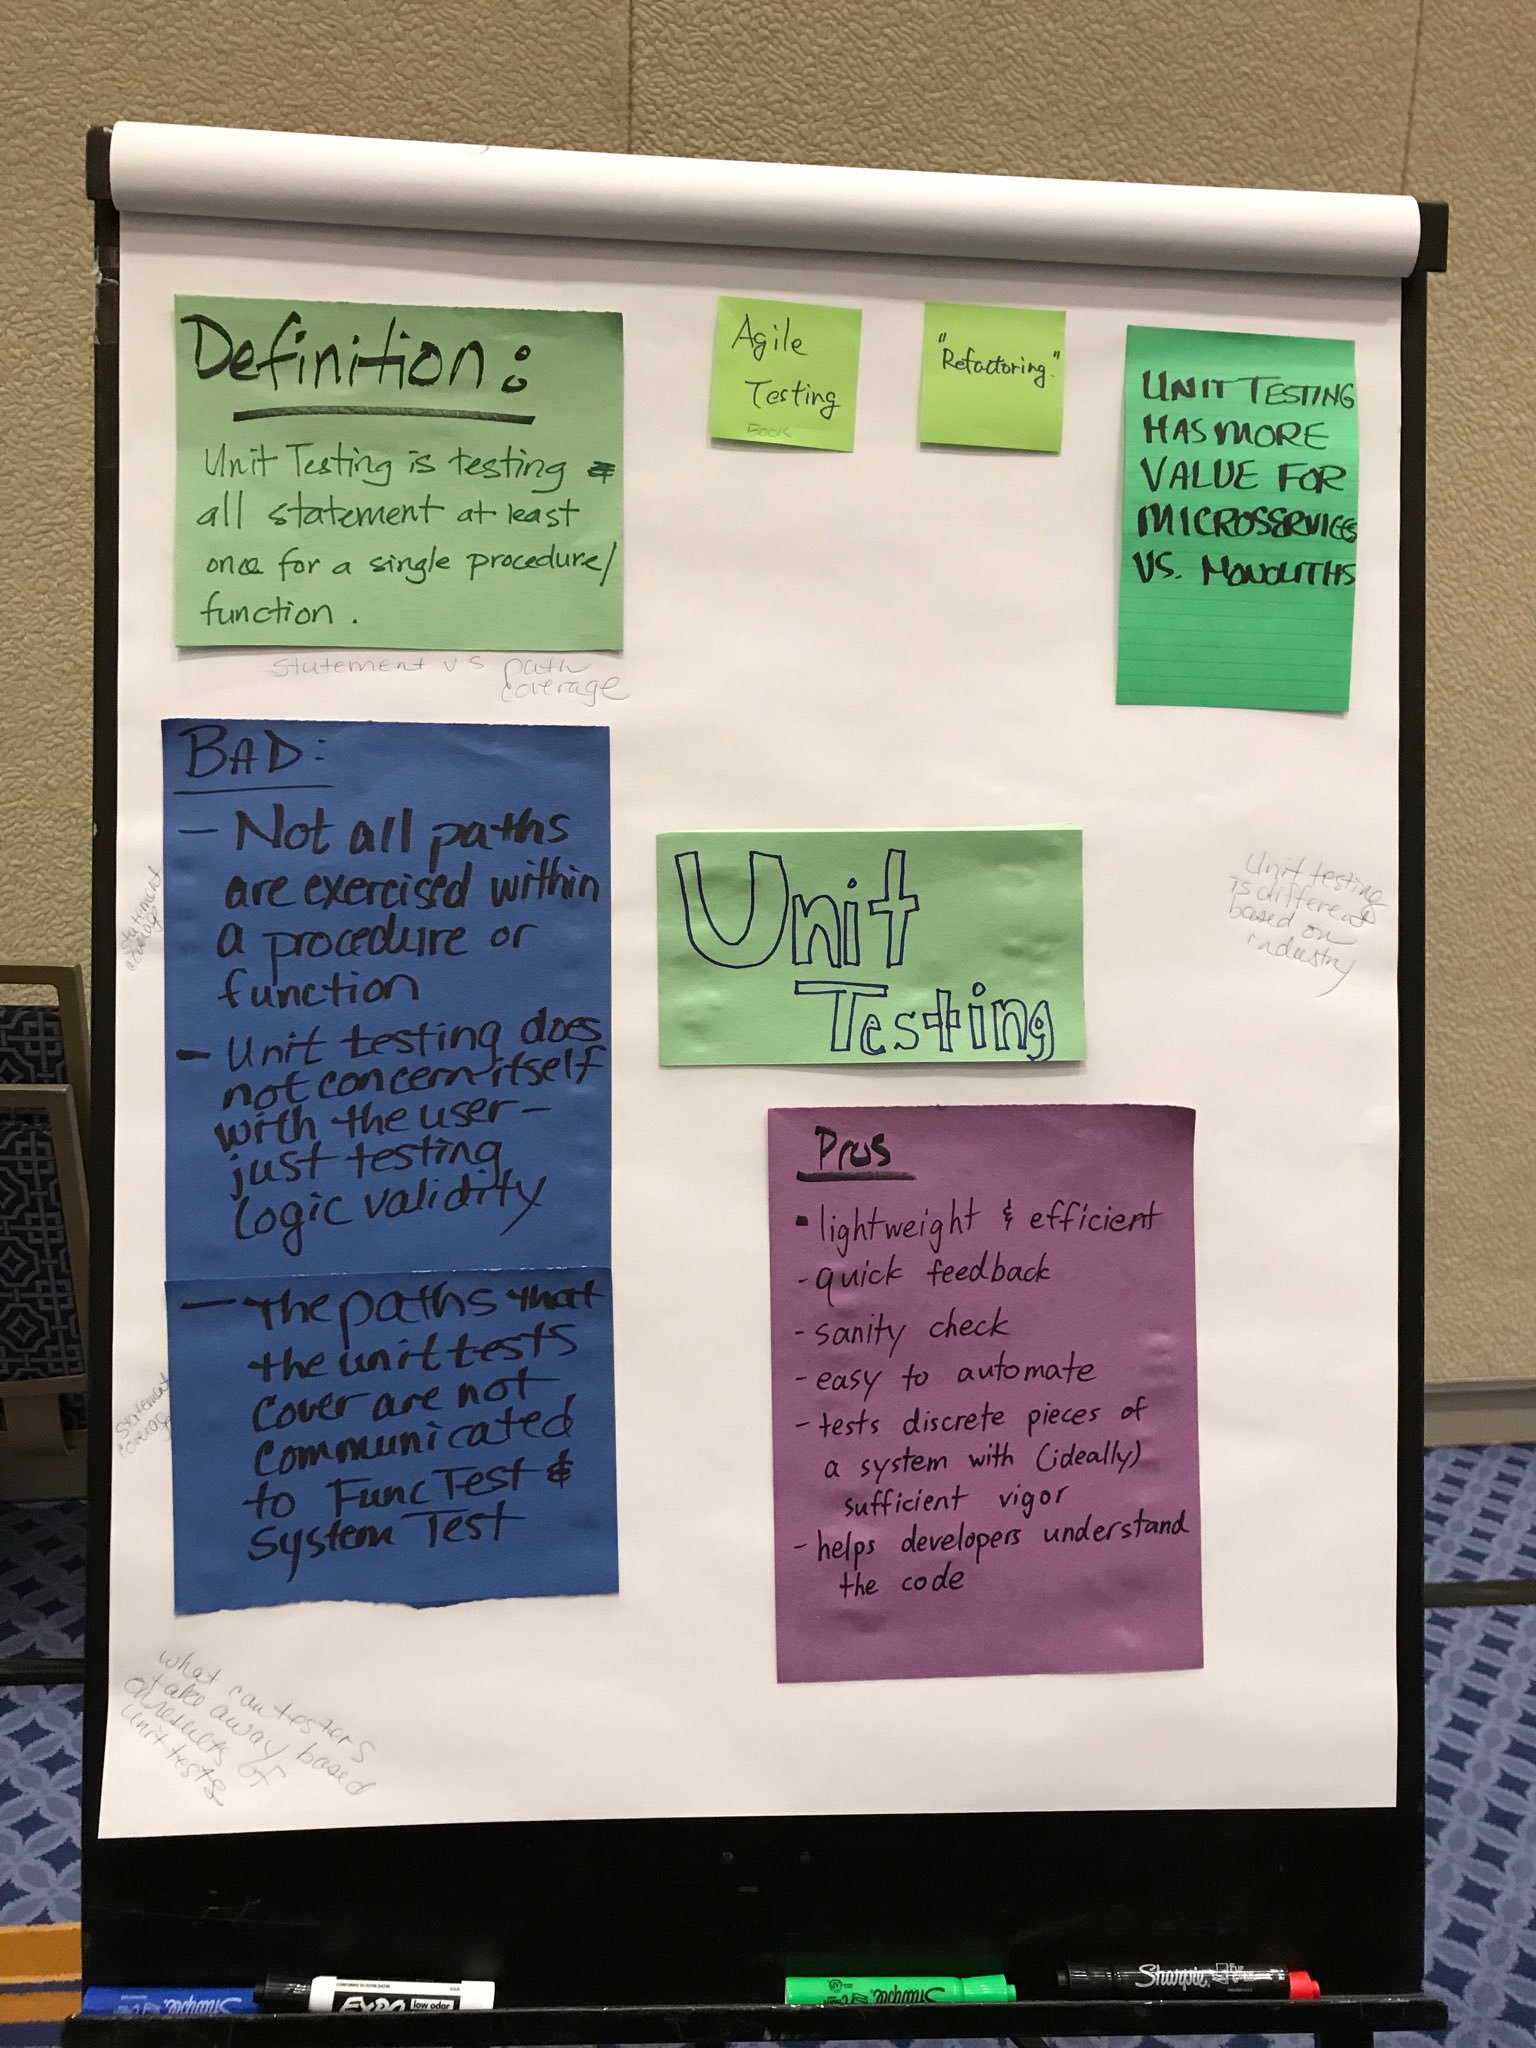 Definition:
Unit Testing is testing
all statement at least
once for a single procedure/
function.
statement vs path
coverage
Agile
Testing
Book
"Refactoring."
UNIT TESTING
HAS MORE
VALUE FOR
MICROSERVICES
VS. MONOLITHS
BAD:
- Not all paths
are exercised within
a procedure or
function
- Unit testing does
not concern itself
with the user -
just testing
logic validity
- The paths that
the unit tests
cover are not
communicated
to Func Test &
System Test
statement
coverage
statement
coverage
Unit
Testing
Unit testing
is different
based on
industry
Pros
- lightweight & efficient
- quick feedback
- sanity check
- easy to automate
- tests discrete pieces of
a system with (ideally)
sufficient vigor
- helps developers understand
the code
what can testers
take away based
on results of
unit tests
Sharpie
EXPO low odor
Sharpie
Sharpie